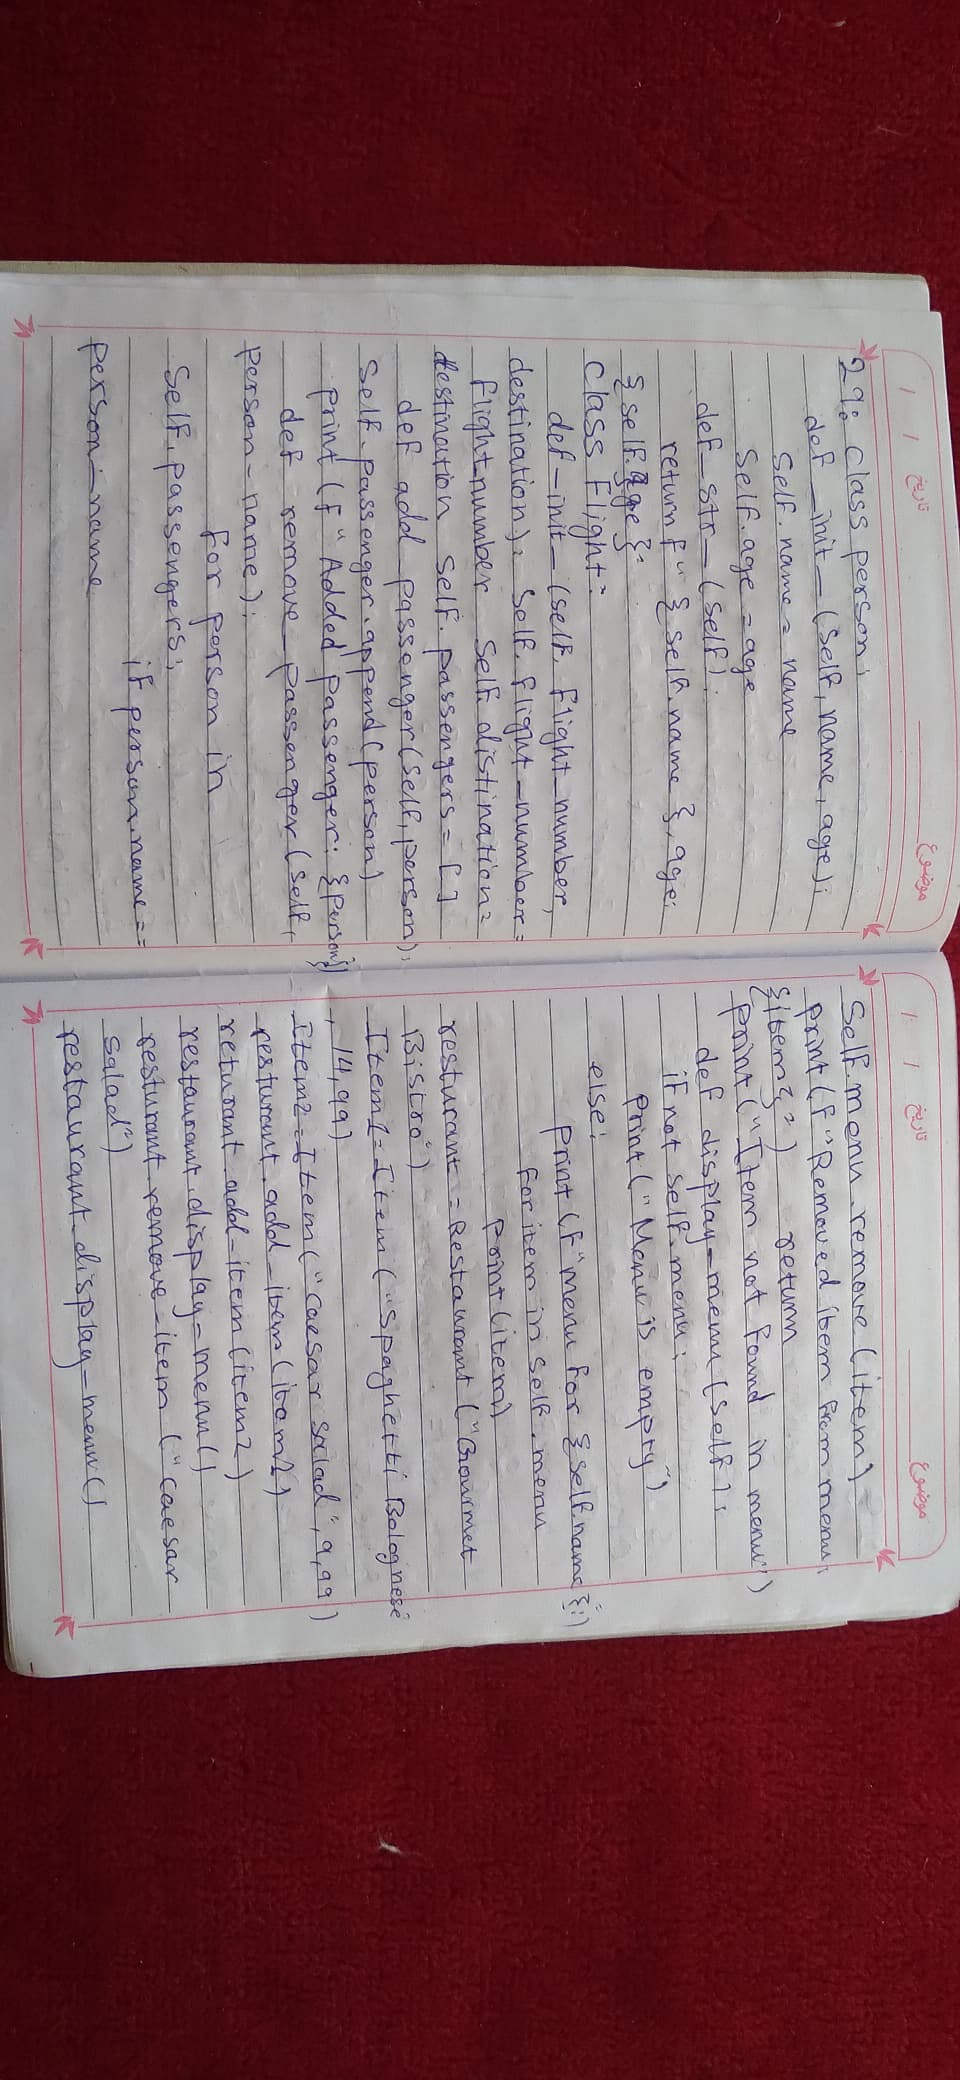 تاریخ 1 1
موضوع
29: class person:
def _init_(self, name, age):
self.name = name
self.age = age
def_str_(self):
return f" {self.name}, age:
{self.age}:
class Flight:
def-init-(self. flight-number,
destination): self.flight-number=
flight-number self.distination=
destination self.passengers = []
def add passenger(self, person):
self.passenger.append(person)
print (f"Added passenger: {person})
def remove_passenger(self,
person-name):
for person in
self.passengers:
if person.name==
person-name
تاریخ 1 1
موضوع
self.menu.remove (item)
print(f"Removed item from menu:
{item}") return
print("Item not found in menu")
def display-menu(self):
if not self.menu:
print("Menu is empty")
else:
print(f"Menu for {self.name}:)
for item in self.menu
print(item)
resturant = Restaurant ("Gourmet
Bistro")
Item1 = Item("Spaghetti Bolognese
, 14,99)
Item2 = Item("Caesar salad", 9,99)
resturant.add-item(item1)
returant.add-item(item2)
restaurant.display-menu()
resturant.remove-item ("Caesar
salad")
restaurant.display-menu()